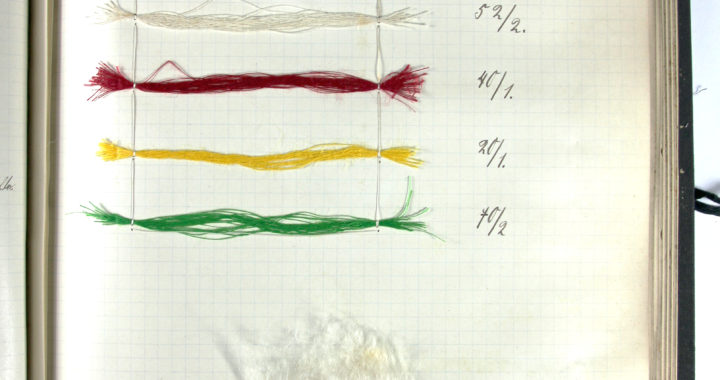 52/2.
40/1.
20/1.
40/2